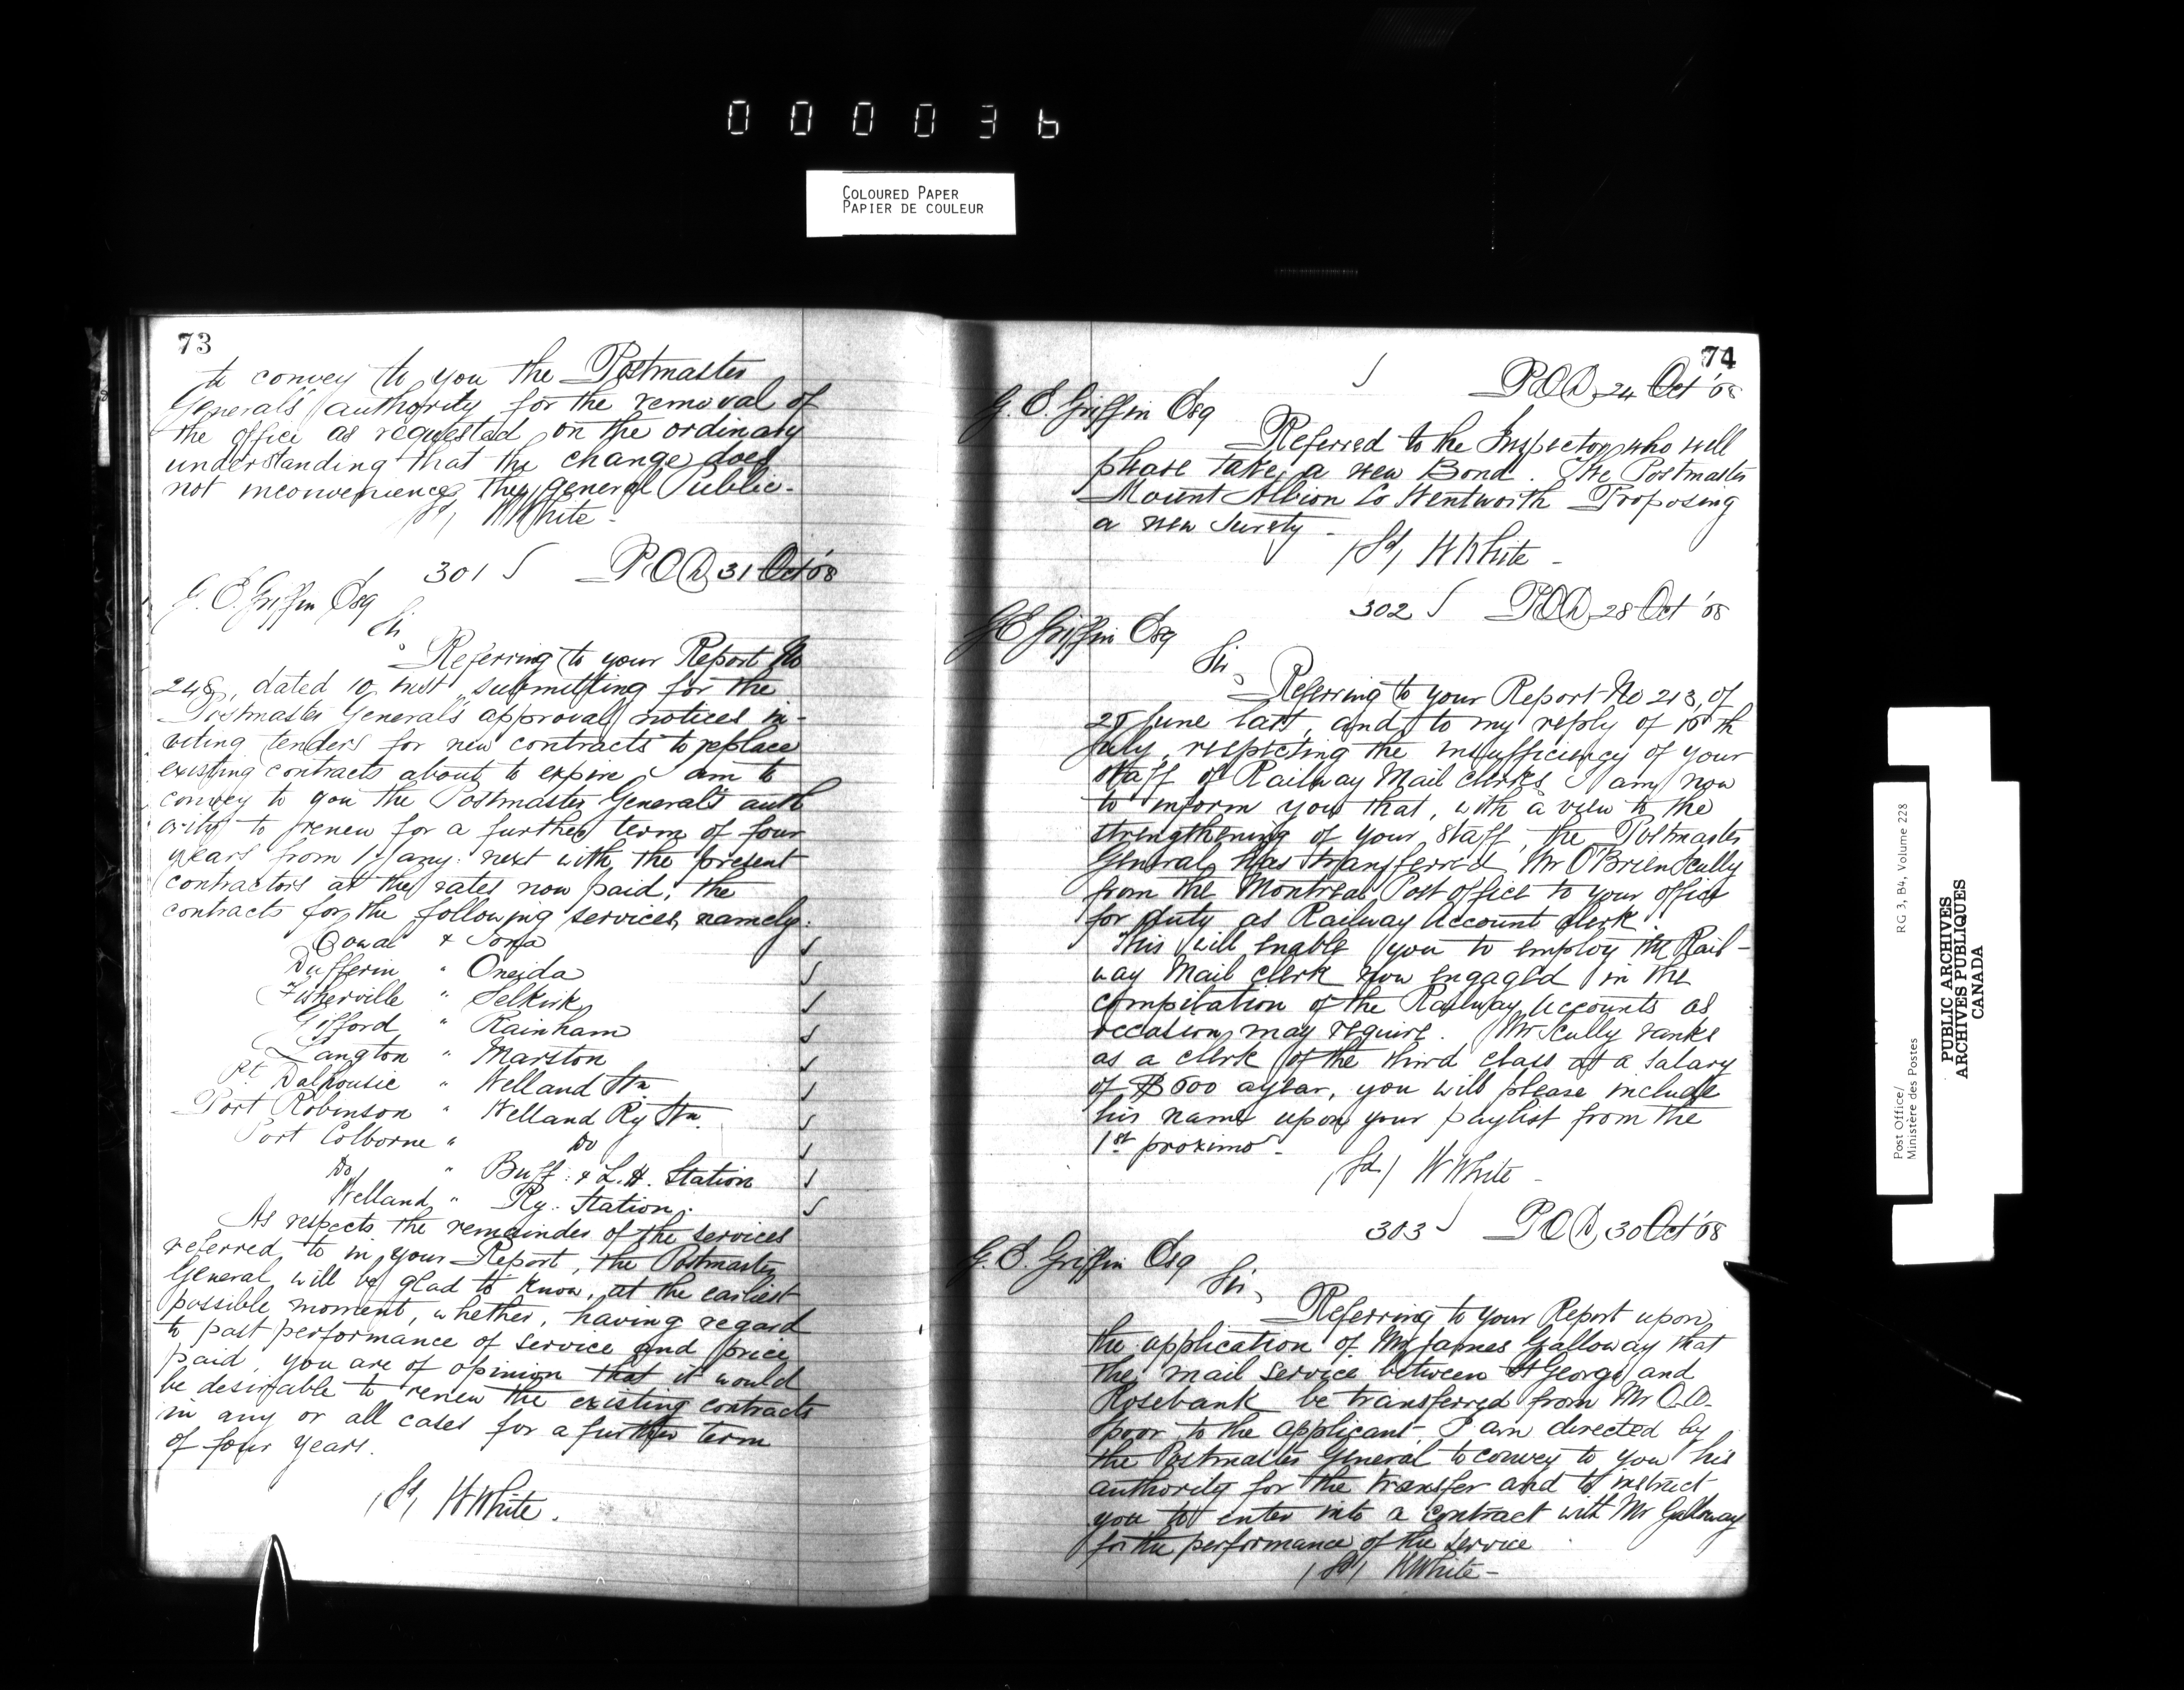 000036
COLOURED PAPER
PAPIER DE COULEUR
73
to convey to you the Postmaster
Generals' authority for the removal of
the office as requested on the ordinary
understanding that the change does
not inconvenience the general Public.
(Sd) W White -
301 P.O.D. 31 Oct '08
G. E. Griffin Esq
Sir,
Referring to your Report No
248, dated 10 inst submitting for the
Postmaster General's approval notices in-
viting tenders for new contracts to replace
existing contracts about to expire I am to
convey to you the Postmaster General's auth
ority to renew for a further term of four
years from 1 Jany: next with the present
contractors at the rates now paid, the
contracts for the following services, namely:
Cowal & Iona
Dufferin " Oneida
Fisherville " Selkirk
Gifford " Rainham
Langton " Marston
Pt Dalhousie " Welland Stn
Port Robinson " Welland Ry Stn.
Port Colborne " Do
Do " Buff: & L. H. Station
Welland " Ry. Station.
As respects the remainder of the services
referred to in your Report, the Postmaster
General will be glad to know, at the earliest
possible moment, whether, having regard
to past performance of service and price
paid, you are of opinion that it would
be desirable to renew the existing contracts
in any or all cases for a further term
of four years.
(Sd) W White.
74
P.O.D. 24 Oct '08
G. E. Griffin Esq
Referred to the Inspector who will
please take a new Bond. The Postmaster
Mount Albion Co Wentworth Proposing
a new Surety -
(Sd) W White -
302 P.O.D. 28 Oct '08
G E Griffin Esq
Sir,
Referring to your Report No 213, of
25 June last, and to my reply of 10th
July, respecting the insufficiency of your
staff of Railway Mail Clerks I am now
to inform you that, with a view to the
strengthening of your staff, the Postmaster
General has transferred Mr O'Brien Scully
from the Montreal Post office to your office
for duty as Railway Account Clerk.
This will enable you to employ the Rail-
way Mail Clerk now engaged in the
compilation of the Railway Accounts as
occasion may require. Mr Scully ranks
as a clerk of the third class at a salary
of $600 a year, you will please include
his name upon your paylist from the
1st proximo -
(Sd) W White -
303 P.O.D. 30 Oct '08
G. E. Griffin Esq
Sir,
Referring to your Report upon
the application of Mr James Galloway that
the mail service between St George and
Rosebank be transferred from Mr
Spoor to the applicant, I am directed by
the Postmaster General to convey to you his
authority for the transfer and to instruct
you to enter into a contract with Mr Galloway
for the performance of the service
(Sd) W White -
Post Office/
Ministère des Postes
RG 3, B4, Volume 228
PUBLIC ARCHIVES
ARCHIVES PUBLIQUES
CANADA